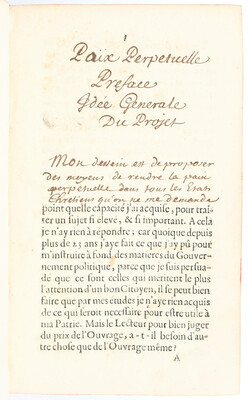 Paix Perpetuelle
Preface
Idée Generale
Du Projet
Mon dessein est de proposer
des moyens de rendre la paix
perpetuelle dans tous les Etats
Chretiens qu'on ne me demande
point quelle capacité j'ai acquise, pour traî-
ter un sujet si élevé, & si important. A cela
je n'ay rien à répondre; car quoique depuis
plus de 23 ans j'aye fait ce que j'ay pû pour
m'instruire à fond des matieres du Gouver-
nement politique, parce que je suis persua-
dé que ce sont celles qui meritent le plus
l'attention d'un bon Citoyen, il se peut bien
faire que par mes études je n'aye rien acquis
de ce qui seroit necessaire pour estre utile à
ma Patrie. Mais le Lecteur pour bien juger
du prix de l'Ouvrage, a-t-il besoin d'au-
tre chose que de l'Ouvrage même?
A